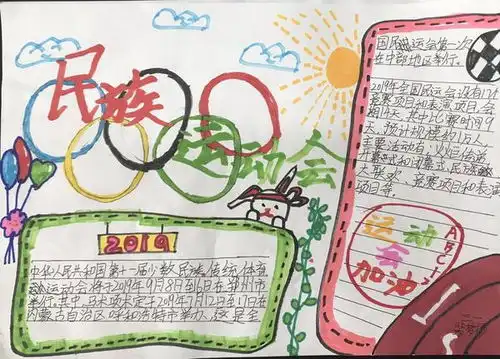 民族
运动会
2019
中华人民共和国第十一届少数民族传统体育
运动会将于2019年9月8日到16日在郑州市
举行,其中,马术项定于2019年7月12日到17日在
内蒙古自治区呼和浩特市举办,这是全
国民族运会第一次
在中部地区举行。
2019年全国民运会设有17大
竞赛项目和表演项目,会
期 天,其中比赛时间9
天,预计规模约1万人,
主要活动有:火炬传递
开幕式和闭幕式,民族
大联欢、竞赛项目和表演
项目等。
运动
会
加油
ABC